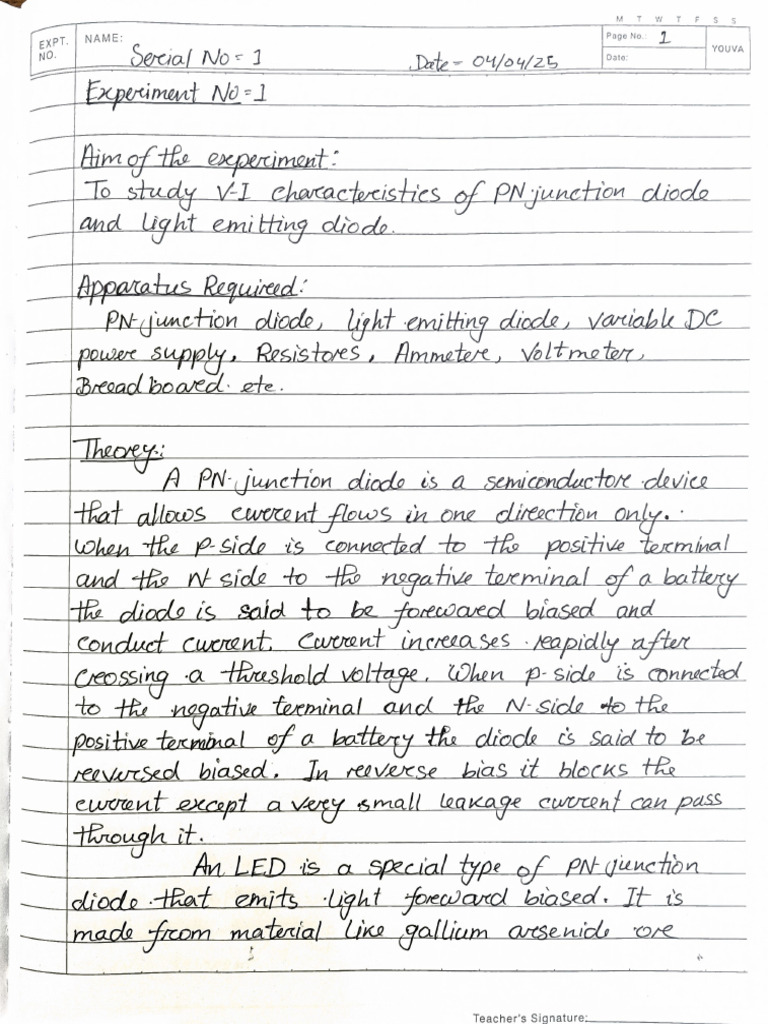 M T W T F S S
EXPT. NO.
NAME:
Page No.: 1
YOUVA
Serial No = 1
Date - 04/04/25
Date:
Experiment No = 1
Aim of the experiment:
To study V-I characteristics of PN-junction diode
and light emitting diode.
Apparatus Required:
PN-junction diode, light emitting diode, variable DC
power supply, Resistors, Ammeter, Voltmeter,
Bread board. etc.
Theory:
A PN-junction diode is a semiconductor device
that allows current flows in one direction only.
When the p-side is connected to the positive terminal
and the N-side to the negative terminal of a battery
the diode is said to be forward biased and
conduct current. Current increases rapidly after
crossing a threshold voltage. When p-side is connected
to the negative terminal and the N-side to the
positive terminal of a battery the diode is said to be
reversed biased. In reverse bias it blocks the
current except a very small leakage current can pass
through it.
An LED is a special type of PN-junction
diode that emits light forward biased. It is
made from material like gallium arsenide or
Teacher's Signature: